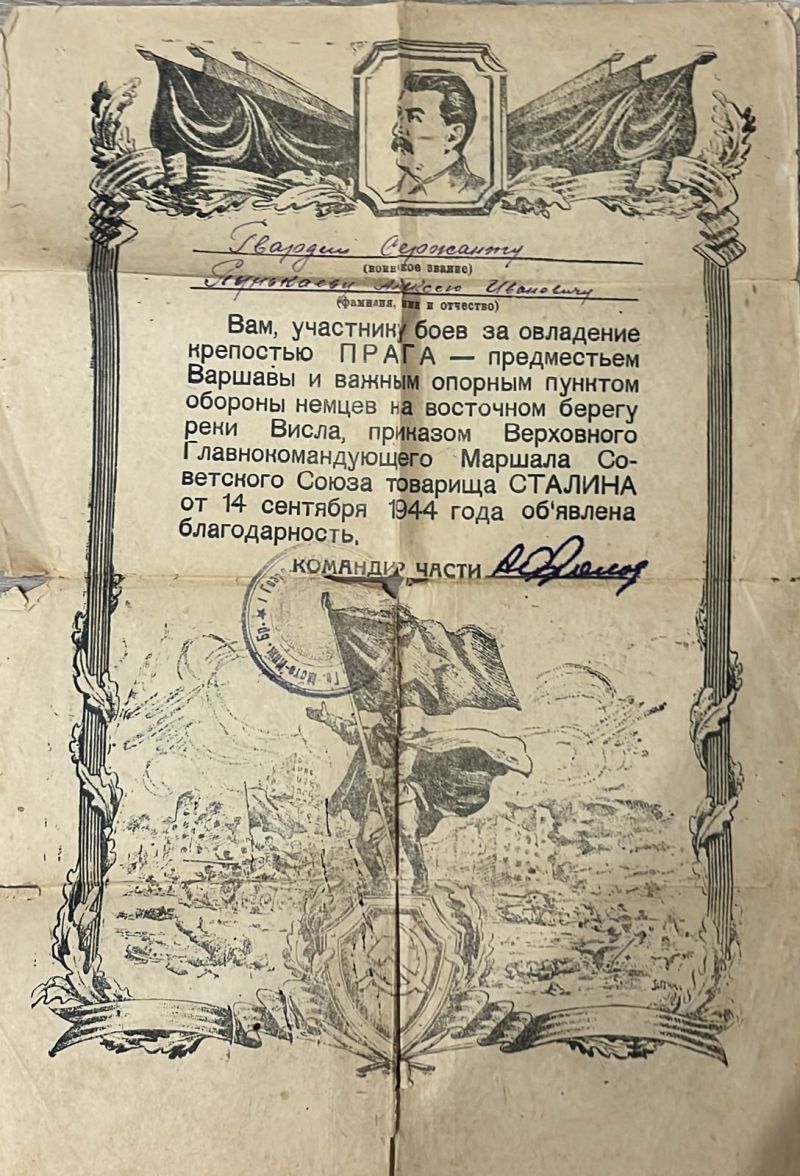 Гвардии Сержанту
(воинское звание)
Пунькаеву Алексею Ивановичу
(фамилия, имя и отчество)
Вам, участнику боев за овладение
крепостью ПРАГА — предместьем
Варшавы и важным опорным пунктом
обороны немцев на восточном берегу
реки Висла, приказом Верховного
Главнокомандующего Маршала Со-
ветского Союза товарища СТАЛИНА
от 14 сентября 1944 года об'явлена
благодарность.
КОМАНДИР ЧАСТИ
Гв. Мото-Инж. Бр.